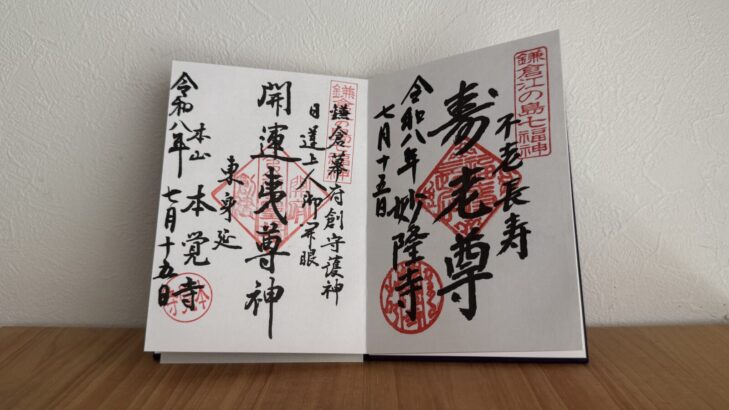 鎌倉江の島七福神
不老長寿
寿老尊
妙隆寺
令和八年
七月十五日
鎌倉幕府創守護神
日蓮上人御開眼
開運夷尊神
東身延
本山
本覚寺
令和八年
七月十五日